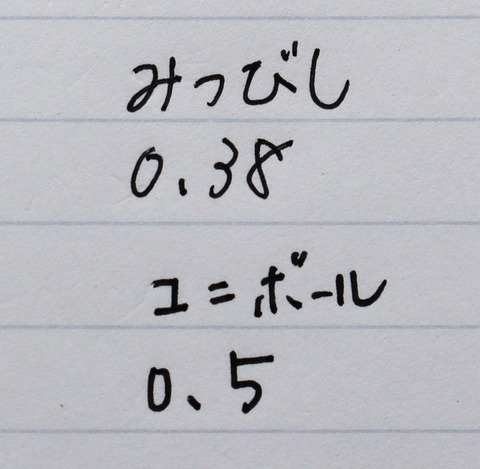 みつびし
0.38
ユニボール
0.5